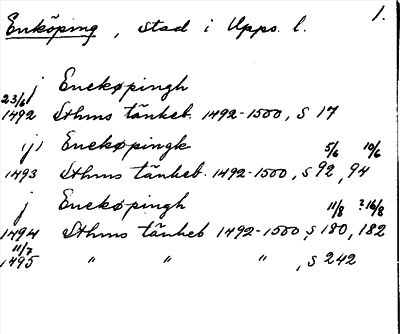 Enköping, stad i Upps. l. 1.
j Enekøpingh
23/6
1492 Sthms tänkeb. 1492-1500, s 17
ij i Enekøpingk 5/6 10/6
1493 Sthms tänkeb. 1492-1500, s 92, 94
j Enekøpingh 11/8 ?16/8
1494 Sthms tänkeb 1492-1500, s 180, 182
11/7
1495 " " " , s 242